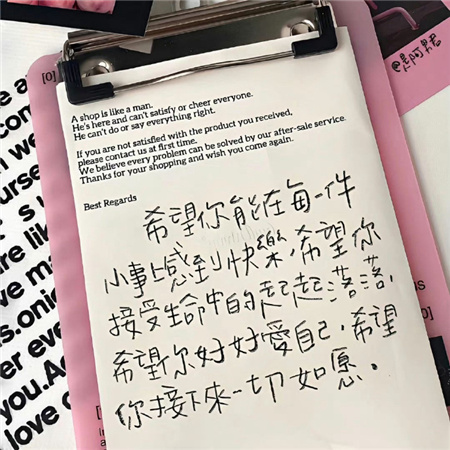 [0]
A shop is like a man.
He's here and can't satisfy or cheer everyone.
He can't do or say everything right.
If you are not satisfied with the product you received,
please contact us at first time.
We believe every problem can be solved by our after-sale service.
Thanks for your shopping and wish you come again.
Best Regards
希望你能在每一件
小事上感到快樂,希望你
接受生命中的起起落落,
希望你好好愛自己,希望
你接下來一切如愿.
you.
love